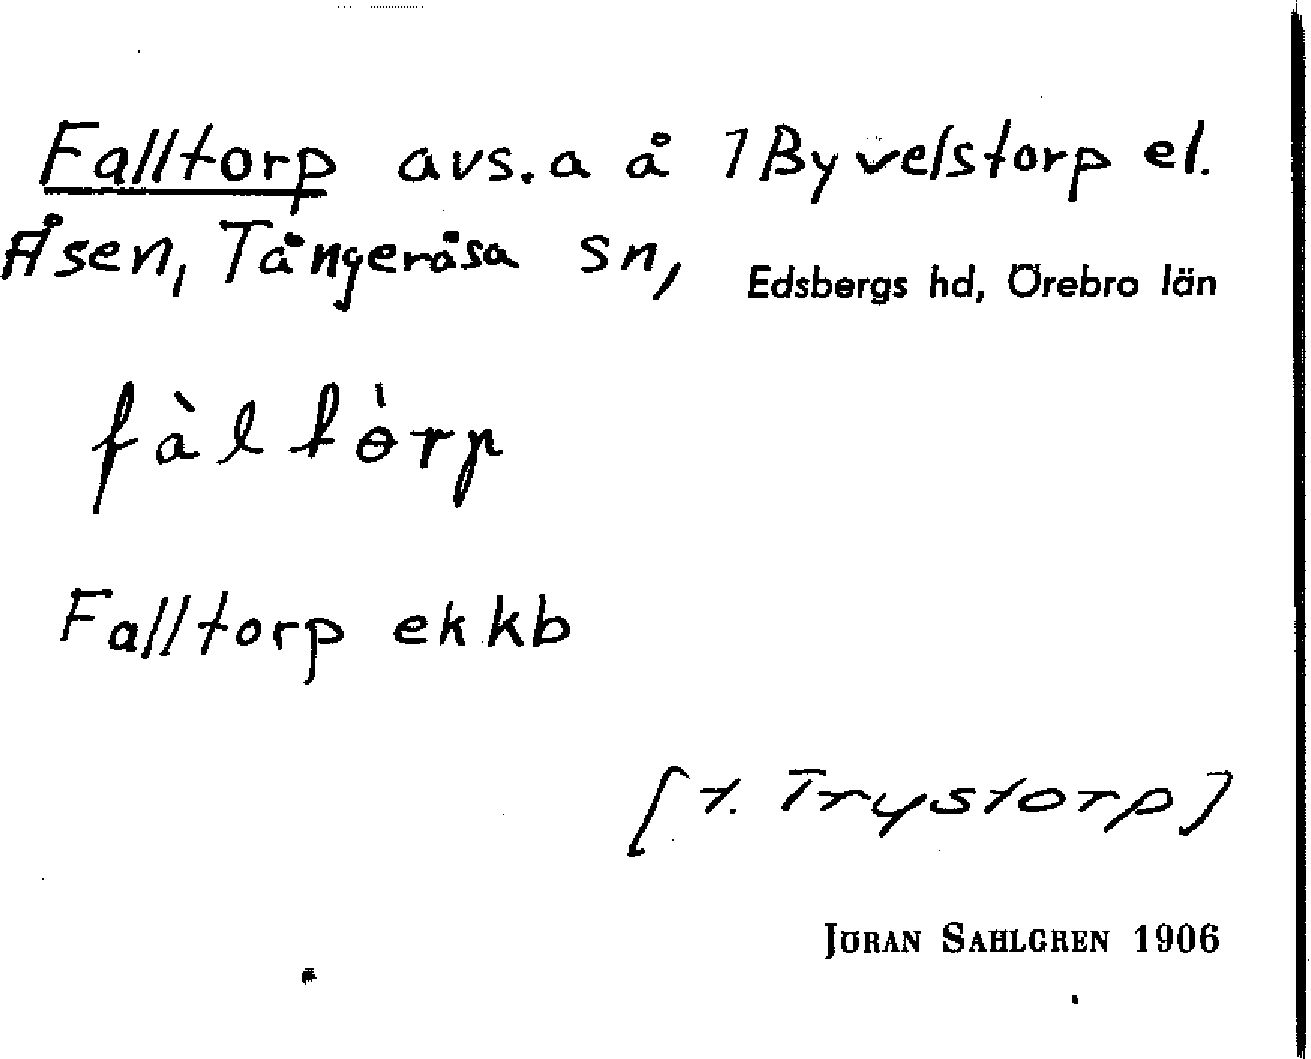 Falltorp avs. a å 1 Byvelstorp el.
Åsen, Tångeråsa sn, Edsbergs hd, Örebro län
fàltò̀rp
Falltorp ekkb
[t. Trystorp]
JÖRAN SAHLGREN 1906